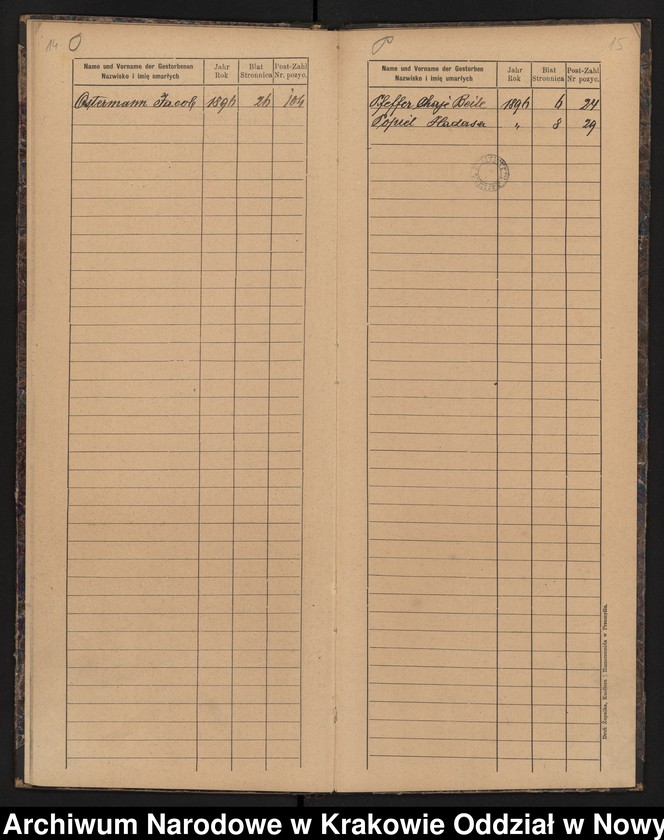 14 O
Name und Vorname der Gestorbenen
Nazwisko i imię umarłych
Jahr
Rok
Blat
Stronnica
Post-Zahl
Nr. pozyc.
Ostermann Jacob 1896 26 104
P 15
Name und Vorname der Gestorbenen
Nazwisko i imię umarłych
Jahr
Rok
Blat
Stronnica
Post-Zahl
Nr. pozyc.
Pfeffer Chaje Beile 1896 6 24
Popiel Hadasa „ 8 29
Druk Żupnika, Knollera i Hammerschmidta w Przemyślu.
Archiwum Narodowe w Krakowie Oddział w Nowy